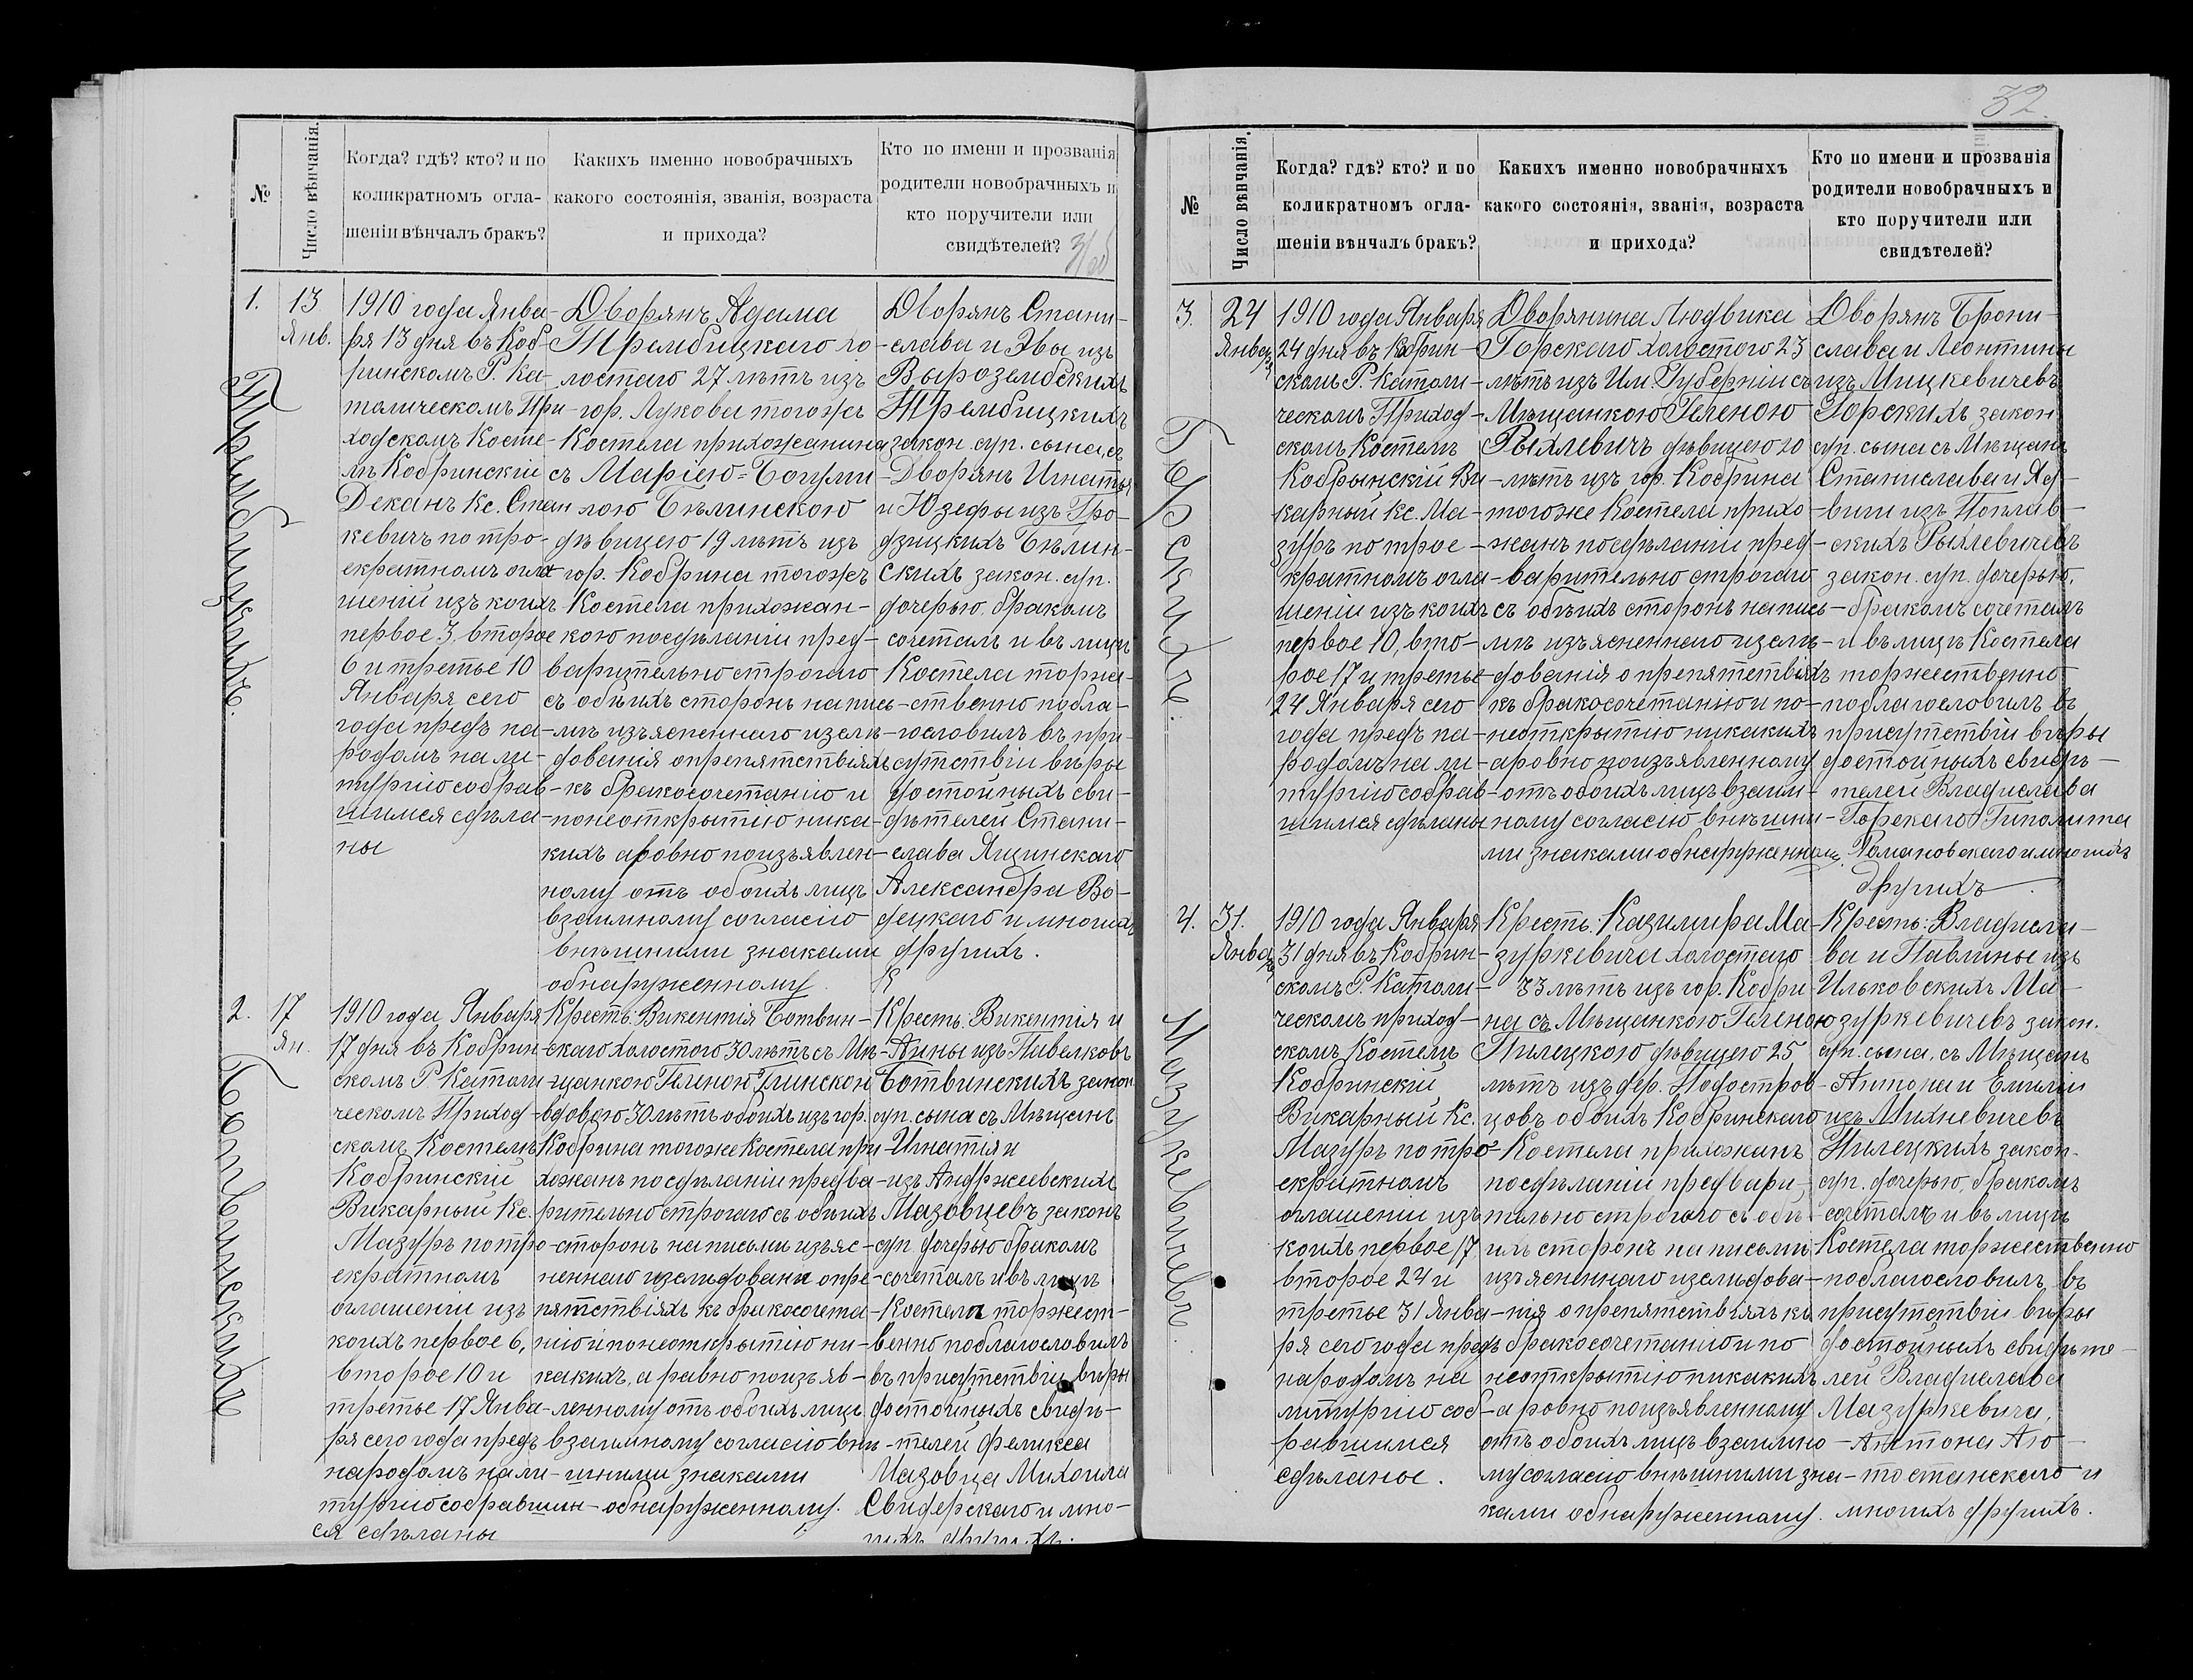 32.
№
Число вѣнчанія.
Когда? гдѣ? кто? и по
коликратномъ огла-
шеніи вѣнчалъ бракъ?
Какихъ именно новобрачныхъ
какого состоянія, званія, возраста
и прихода?
Кто по имени и прозванія
родители новобрачныхъ и
кто поручители или
свидѣтелей?
1.
13
Янв.
Трембицкихъ.
1910 года Янва-
ря 13 дня въ Коб-
ринскомъ Р. Ка-
толическомъ При-
ходскомъ Косте-
лѣ Кобринскій
Деканъ Кс. Стан
кевичъ по тро-
екратномъ огла
шеній изъ коихъ
первое 3, второе
6 и третье 10
Января сего
года предъ на-
родомъ на ли-
тургію собрав-
шимся сдѣла-
ны
Дворянъ Адама
Трембицкаго хо-
лостаго 27 лѣтъ изъ
гор. Лукова тогожъ
Костела прихожанина
съ Маріею-Богуми-
лою Бѣлинскою
дѣвицею 19 лѣтъ изъ
гор. Кобрина тогожъ
Костела прихожан-
кою посдѣланіи пред-
варительно строгаго
съ обѣихъ сторонъ на пись-
мѣ изъясненнаго изслѣ-
дованія о препятствіяхъ
къ бракосочетанію и
понеоткрытію ника-
кихъ аровно поизъявлен-
ному отъ обоихъ лицъ
взаимному согласію
внѣшними знаками
обнаруженному.
Дворянъ Стани-
слава и Эвы изъ
Вырозембскихъ
Трембицкихъ
закон. суп. сына, съ
Дворянъ Игнатія
и Юзефы изъ Гро-
дзицкихъ Бѣлин-
скихъ закон. суп.
дочерью, бракомъ
сочеталъ и въ лицѣ
Костела торже-
ственно побла-
гословилъ въ при
сутствіи вѣры
достойныхъ сви-
дѣтелей Стани-
слава Ящинскаго
Александра Во-
децкаго и многихъ
другихъ.
2.
17
Ян.
Ботвинскихъ
1910 года Января
17 дня въ Кобрин-
скомъ Р Католи
ческомъ Приход-
скомъ Костелѣ
Кобринскій
Викарный Кс.
Мазуръ по тро-
екратномъ
оглашеніи изъ
коихъ первое 6,
второе 10 и
третье 17 Янва-
ря сего года предъ
народомъ на ли-
тургію собравшим-
ся сдѣланы
Крестъ. Викентія Ботвин-
скаго холостого 30 лѣтъ съ Мѣ-
щанкою Геленою Глинскою
вдовою 30 лѣтъ обоихъ изъ гор.
Кобрина тогоже Костела при
хожанъ посдѣланіи предва-
рительно строгаго съ обѣихъ
сторонъ на письмѣ изъяс-
неннаго изслѣдованія о пре-
пятствіяхъ къ бракосочета-
нію и понеоткрытію ни-
какихъ, а равно поизъяв-
ленному отъ обоихъ лицъ
взаимному согласію внѣ-
шними знаками
обнаруженному.
Крестъ. Викентія и
Анны изъ Павелковъ
Ботвинскихъ закон
суп. сына съ Мѣщанъ
Игнатія и
изъ Андржеевскихъ
Мазовцевъ законъ
суп дочерью бракомъ
сочеталъ и въ лицѣ
Костела торжест-
венно поблагословилъ
въ присутствіи вѣры
достойныхъ свидѣ-
телей Феликса
Мазовца Михаила
Свидерскаго и мно-
гихъ другихъ.
№
Число вѣнчанія.
Когда? гдѣ? кто? и по
коликратномъ огла-
шеніи вѣнчалъ бракъ?
Какихъ именно новобрачныхъ
какого состоянія, званія, возраста
и прихода?
Кто по имени и прозванія
родители новобрачныхъ и
кто поручители или
свидѣтелей?
3.
24
Января
Горскихъ.
1910 года Января
24 дня въ Кобрин-
скомъ Р. Католи-
ческомъ Приход-
скомъ Костелѣ
Кобрынскій Ви-
карный Кс. Ма-
зуръ по трое-
кратномъ огла-
шеніи изъ коихъ
первое 10, вто-
рое 17 и третье
24 Января сего
года предъ на-
родомъ на ли-
тургію собрав-
шимся сдѣланы
Дворянина Людвика
Горскаго холостого 23
лѣтъ изъ Им. Губерніи съ
Мѣщанкою Геленою
Рыхлевичъ дѣвицею 20
лѣтъ изъ гор. Кобрина
тогоже Костела прихо-
жанъ посдѣланіи пред-
варительно строгаго
съ обѣихъ сторонъ на пись-
мѣ изъясненнаго изслѣ-
дованія о препятствіяхъ
къ бракосочетанію и по-
неоткрытію никакихъ
аровно поизъявленному
отъ обоихъ лицъ взаим-
ному согласію внѣшни-
ми знаками обнаруженному.
Дворянъ Брони-
слава и Леонтины
изъ Мицкевичевъ
Горскихъ закон
суп. сына съ Мѣщанъ
Станислава и Яд-
виги изъ Поплав-
скихъ Рыхлевичевъ
закон. суп. дочерью,
бракомъ сочеталъ
и въ лицѣ Костела
торжественно
поблагословилъ въ
присутствіи вѣры
достойныхъ свидѣ-
телей Владислава
Горскаго Гиполита
Романовскаго и многихъ
другихъ.
4.
31.
Января
Мазуркевичевъ.
1910 года Января
31 дня въ Кобрин-
скомъ Р. Католи-
ческомъ приход-
скомъ Костелѣ
Кобринскій
Викарный Кс.
Мазуръ по тро-
екратномъ
оглашеніи изъ
коихъ первое 17
второе 24 и
третье 31 Янва-
ря сего года предъ
народомъ на
литургію соб-
равшимся
сдѣланое.
Крестъ. Казимира Ма-
зуркевича холостаго
33 лѣтъ изъ гор. Кобри-
на съ Мѣщанкою Геленою
Пилецкою дѣвицею 25
лѣтъ изъ дер. Подостров-
цовъ обоихъ Кобринскаго
Костела прихожанъ
посдѣланіи предвари-
тельно строгаго съ обѣ-
ихъ сторонъ на письмѣ
изъясненнаго изслѣдова-
нія о препятствіяхъ къ
бракосочетанію и по
неоткрытію никакихъ
а ровно поизъявленному
отъ обоихъ лицъ взаимно-
му согласію внѣшними зна-
ками обнаруженному.
Крестъ: Владисла-
ва и Павлины изъ
Ильковскихъ Ма-
зуркевичевъ закон.
суп. сына, съ Мѣщанъ
Антона и Емиліи
изъ Михневичевъ
Пилецкихъ закон.
суп. дочерью, бракомъ
сочеталъ и въ лицѣ
Костела торжественно
поблагословилъ, въ
присутствіи вѣры
достойныхъ свидѣте-
лей Владислава
Мазуркевича,
Антона Аю-
тостанскаго и
многихъ другихъ.